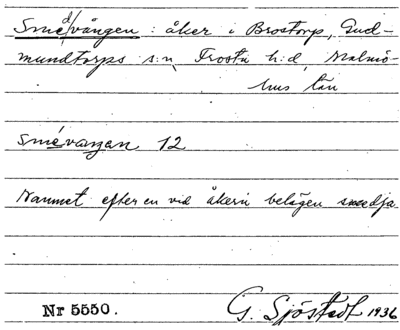 Smedvången : åker i Brostorp, Gud-
mundtorps s:n, Frosta h:d, Malmö-
hus län
smévången 12
Namnet efter en vid åkern belägen smedja
Nr 5550. G. Sjöstedt 1936